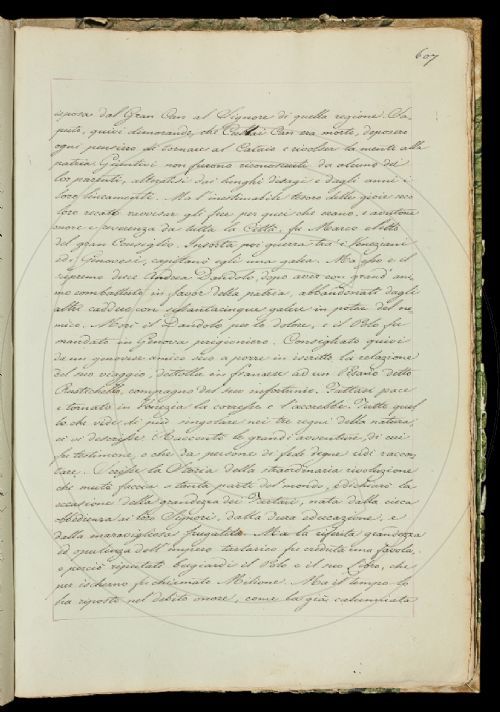 607
isposa dal Gran Can al Signore di quella regione. Sa-
puto, quivi dimorando, che Cublai Can era morto, deposero
ogni pensiero di tornare al Cataio e rivolser la mente alla
patria. Giuntivi non furono riconosciuti da alcuno dei
lor parenti, alteratisi dai lunghi disagi e dagli anni i
loro lineamenti. Ma l'inestimabile tesoro delle gioie seco
loro recato ravvisar gli fece per quei che erano, e avutone
onore e riverenza da tutta la Città, fu Marco eletto
del gran Consiglio. Insorta poi guerra tra i Veneziani
ed i Genovesi, capitanò egli una galea. Ma esso e il
supremo duce Andrea Dandolo, dopo aver con grand' ani-
mo combattuto in favor della patria, abbandonati dagli
altri caddero con settantacinque galere in poter del ne-
mico. Morì il Dandolo per lo dolore, e il Polo fu
mandato in Genova prigioniero. Consigliato quivi
da un genovese amico suo a porre in iscritto la relazione
del suo viaggio, dettolla in francese ad un Pisano detto
Rustichello, compagno del suo infortunio. Fattasi pace
e tornato in Venezia la corresse e l'accrebbe. Tutto quel
lo che vide di più singolare nei tre regni della natura,
ei vi descrisse. Raccontò le grandi avventure, di cui
fu testimone, o che da persone di fede degne udì racon-
tare. Scrisse la Storia della straordinaria rivoluzione
che mutò faccia a tanta parte del mondo, e dichiarò la
occasione della grandezza dei Tartari, nata dalla cieca
obbedienza ai loro Signori, dalla dura educazione, e
dalla maravigliosa frugalità. Ma la riferita grandezza
ed opulenza dell' impero tartarico fu creduta una favola,
e perciò riputati bugiardi il Polo e il suo Libro, che
per ischerno fu chiamato Milione. Ma il tempo lo
ha riposto nel debito onore, come la già calunniata